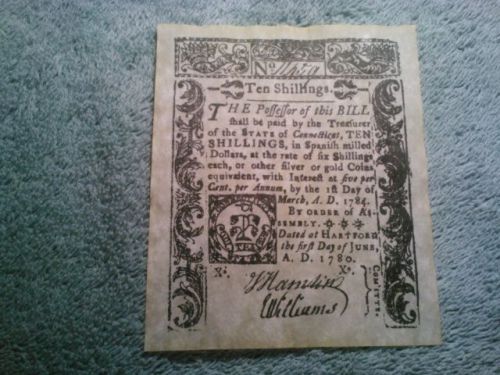 No
Ten Shillings.
THE Possessor of this BILL
shall be paid by the Treasurer
of the STATE of Connecticut, TEN
SHILLINGS, in Spanish milled
Dollars, at the rate of six Shillings
each, or other silver or gold Coins
equivalent, with Interest at five per
Cent. per Annum, by the 1st Day of
March, A. D. 1784.
By ORDER of AS-
SEMBLY.
Dated at HARTFORD
the first Day of JUNE,
A. D. 1780.
Xs. Xs.
Williams